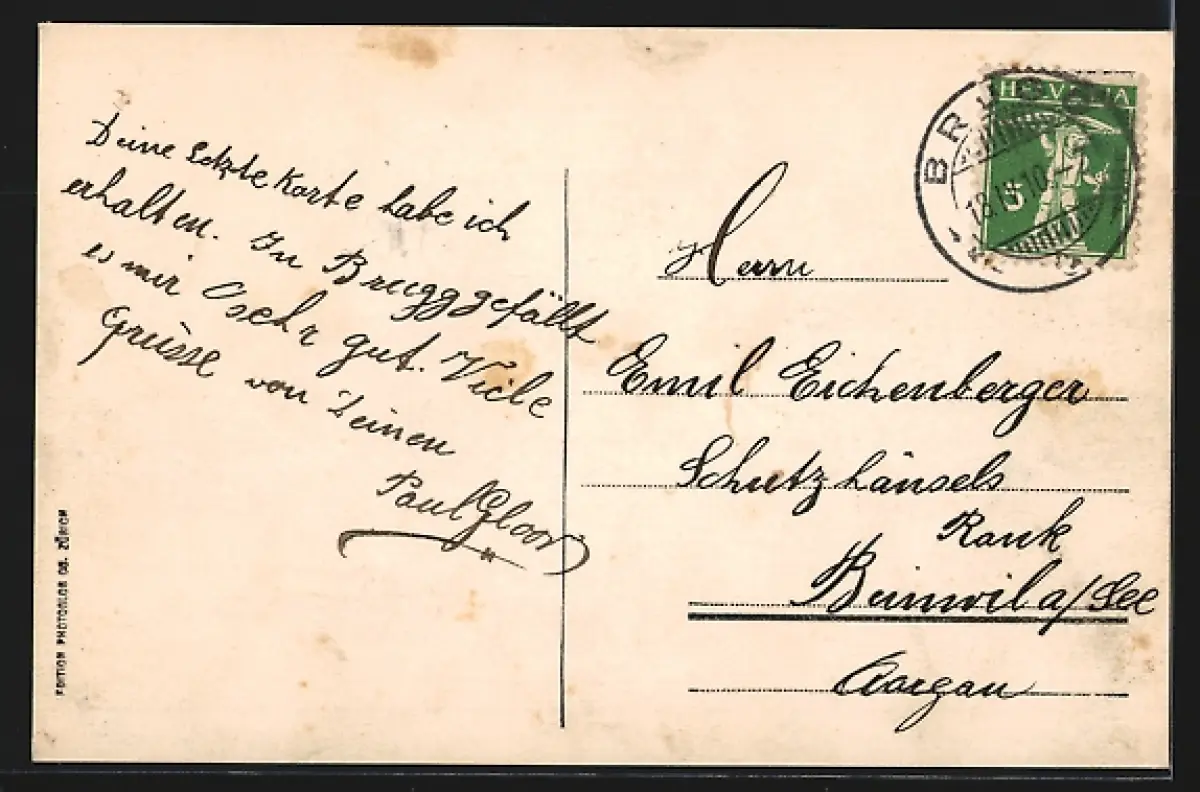 Deine letzte Karte habe ich
erhalten. In Brugg gefällt
es mir sehr gut. Viele
Grüsse von Deinen
Paul Gloor
EDITION PHOTOGLOB CO. ZÜRICH
HELVETIA
5
BRUGG
18.IX.10
Herrn
Emil Eichenberger
Schutzhänsels
Rank
Beinwil a/See
Aargau